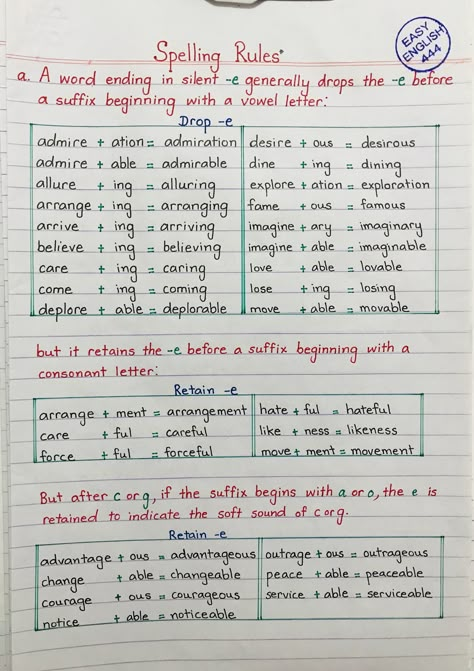 Spelling Rules
EASY
ENGLISH
444
a. A word ending in silent -e generally drops the -e before
a suffix beginning with a vowel letter:
Drop -e
admire + ation = admiration desire + ous = desirous
admire + able = admirable dine + ing = dining
allure + ing = alluring explore + ation = exploration
arrange + ing = arranging fame + ous = famous
arrive + ing = arriving imagine + ary = imaginary
believe + ing = believing imagine + able = imaginable
care + ing = caring love + able = lovable
come + ing = coming lose + ing = losing
deplore + able = deplorable move + able = movable
but it retains the -e before a suffix beginning with a
consonant letter:
Retain -e
arrange + ment = arrangement hate + ful = hateful
care + ful = careful like + ness = likeness
force + ful = forceful move + ment = movement
But after c or g, if the suffix begins with a or o, the e is
retained to indicate the soft sound of c or g.
Retain -e
advantage + ous = advantageous outrage + ous = outrageous
change + able = changeable peace + able = peaceable
courage + ous = courageous service + able = serviceable
notice + able = noticeable